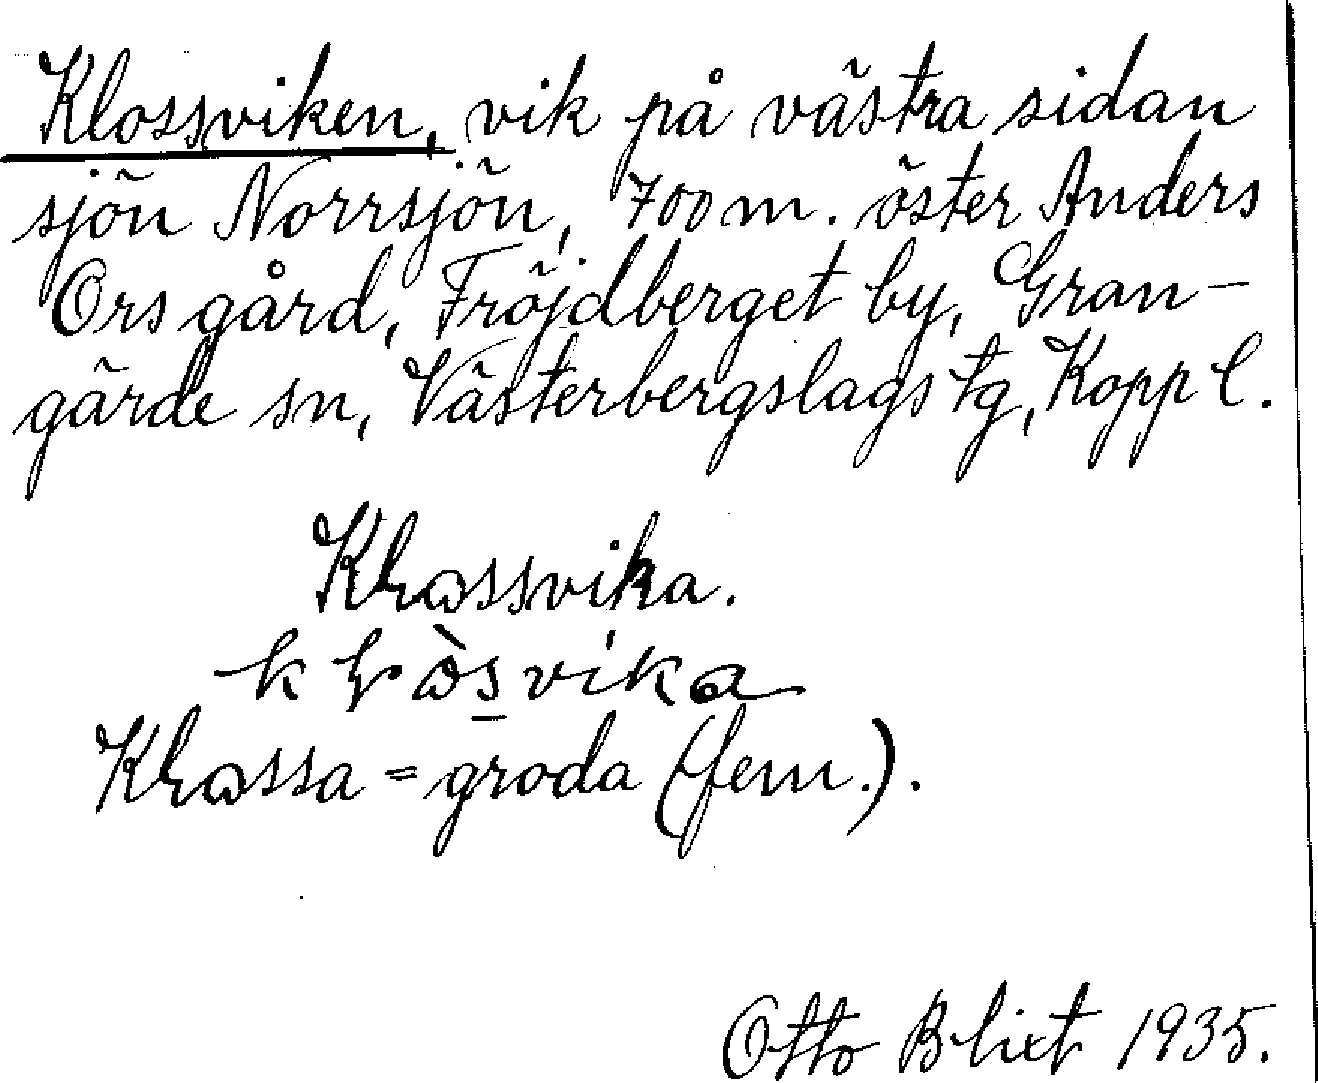 Klossviken, vik på västra sidan
sjön Norrsjön, 700 m. öster Anders
Ors gård, Fröjdberget by, Gran-
gärde sn, Västerbergslags tg, Kopp l.
Kɽɷssvika.
kɽɷ̀s̲vika
Kɽɷssa = groda (fem.).
Otto Blixt 1935.